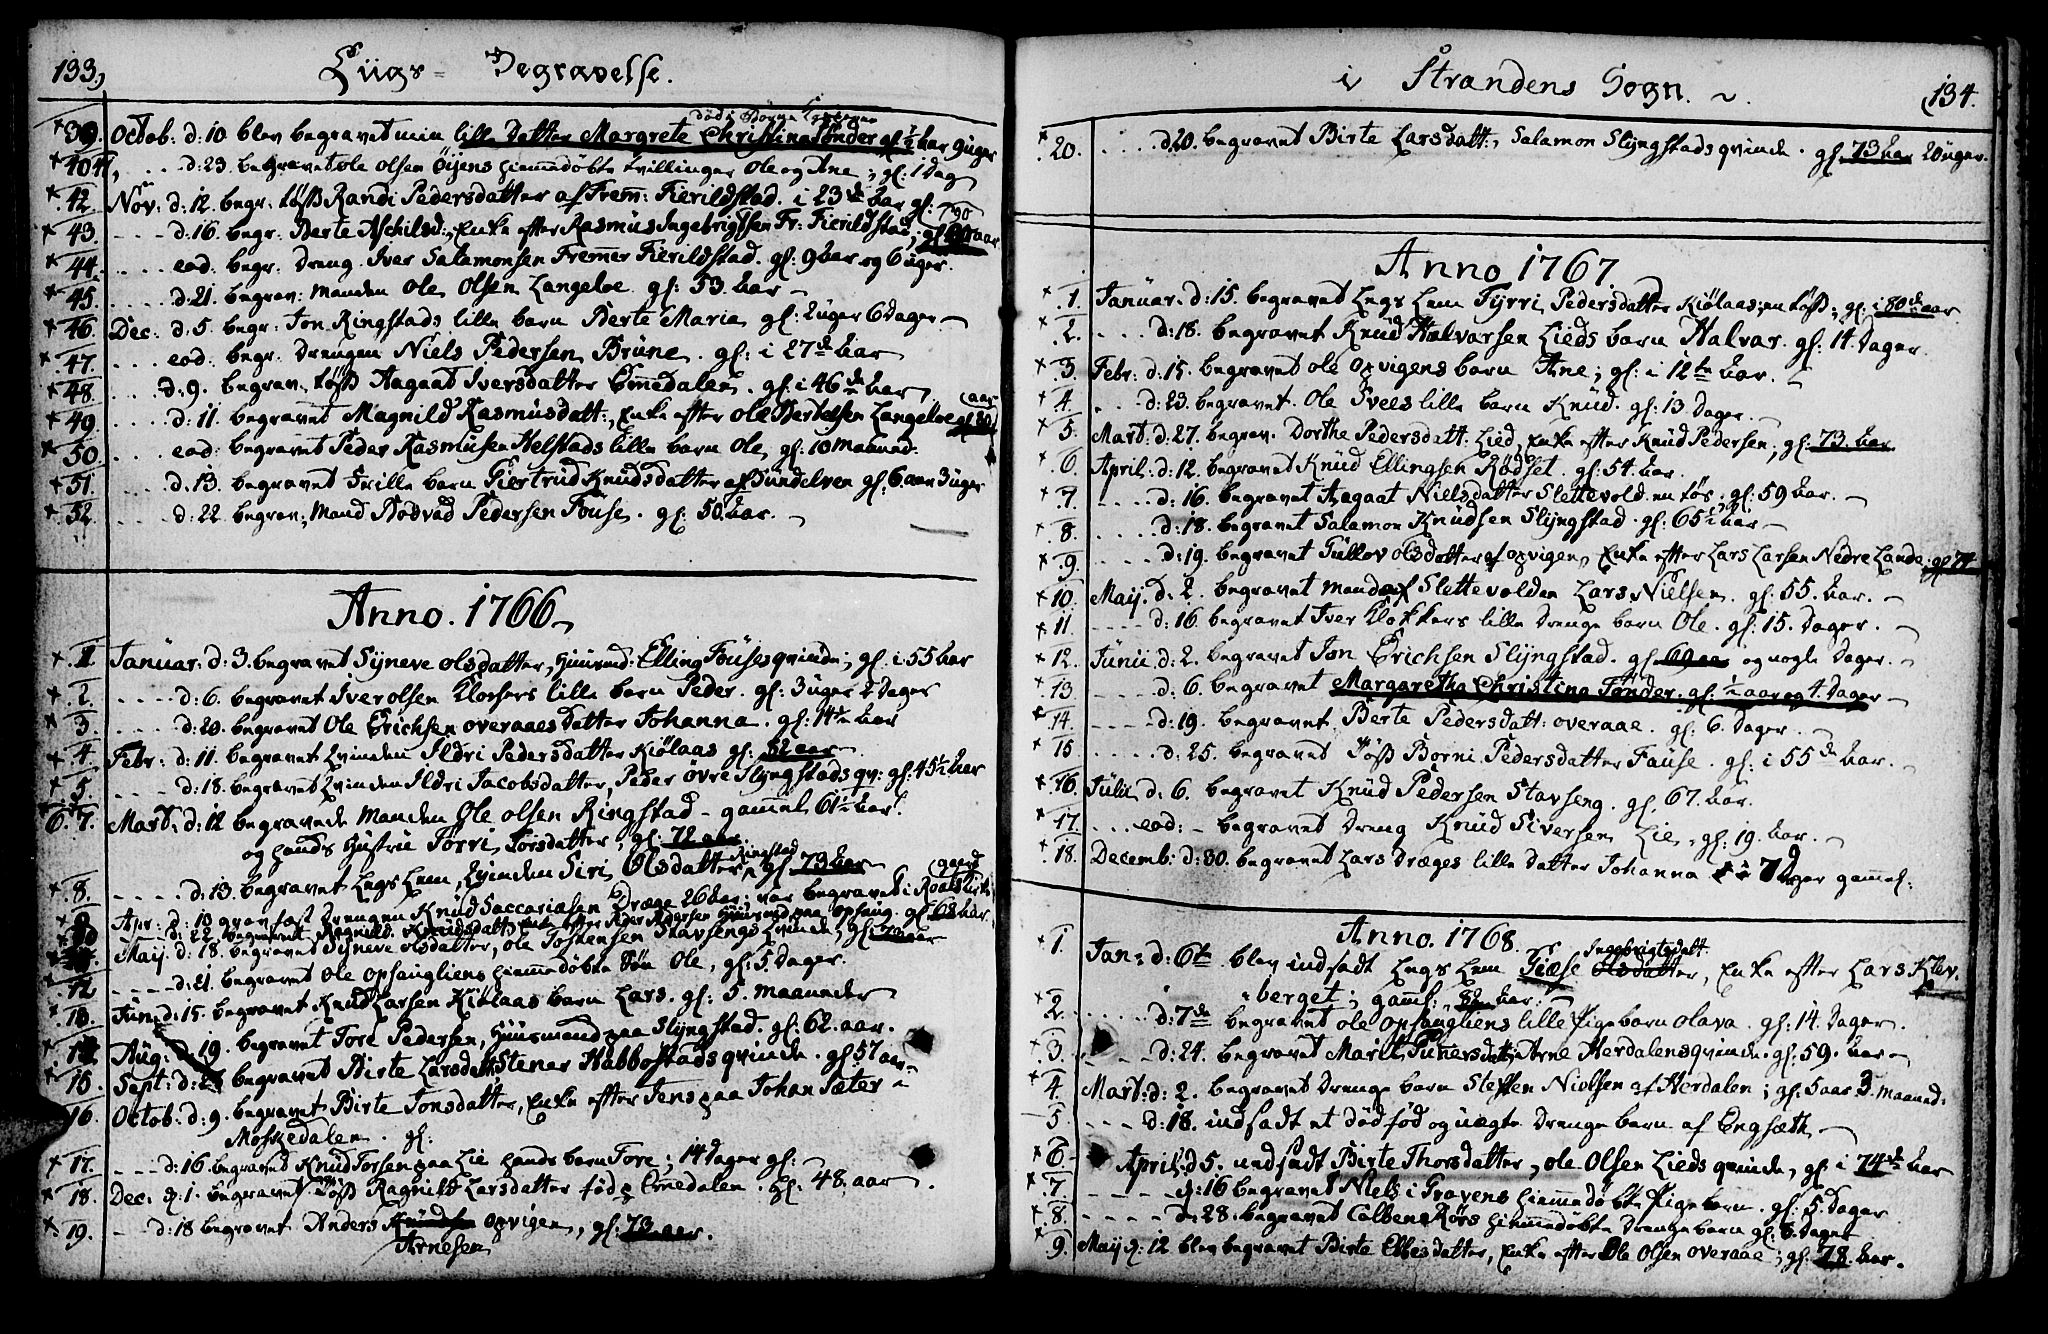 133.
Liigs- Begravelse.
39. Octob: d: 10 blev begravet min lille Datter Margrete Christina Tønder gl: ½ aar 9 uger
40 41, .... d: 23. begravet ole olsen Öyens hiemedøbte tvillinger Ole og Ane; gl: 1 Dag
42. Nov: d: 12. begr: løss Randi Pedersdatter af Frem: Fierildstad. i 23de aar gl:
43. ---- d: 16. begr. Berte Aschilsd:, Enke efter Rasmus Ingebrigtsen Fr: Fierildstad, gl: 90 aar
44. .... eod. begr. Dreng Iver Salamonsen Fremer Fierildstad. gl: 9 aar og 6 uger.
45. .... d: 21. begrav: Manden Ole Olsen Langeloe gl: 53. aar
46. Dec: d: 5. begr: Jon Ringstads lille barn Berte Maria gl: 2 uger 6 Dager.
47. .... eod. begr. Drengen Niels Pedersen Brune. gl: i 27de aar
48. .... d: 9. begrav: løss Aagaat Iversdatter Emedalen. gl: i 46de aar
49. .... d: 11. begravet Magnild Rasmusdatt:, Enke efter Ole Bertelsen Langeloe gl: 80 (aar
50. .... eod: begravet Peder Rasmusen Helstads lille barn Ole, gl: 10 Maaned.
51. .... d: 13. begravet Frille barn Giertrud Knudsdatter af Sundelven gl: 6. aar 3 uger
52. .... d: 22. begrav: Mand Rodvad Pedersen Fouse. gl: 50. aar.
Anno. 1766
1. Januar: d: 3. begravet Syneve olsdatter, Huusmd: Elling Fouses qvinde; gl: i 55 aar
2. ---- d: 6. begravet Iver olsen Klockers lille barn Peder. gl: 3 uger 2 Dager
3. .... d: 20. begravet Ole Erichsen overaaes datter Johanna. gl: 14de aar
4. Febr: d: 11. begravet Qvinden Ildri Pedersdatter Kiølaas gl: 52 aar
5. ---- d: 18. begravet Qvinden Ildri Jacobsdatter, Peder øvre Slyngstads qv: gl: 45½ aar
6. 7. Mart: d: 12 begravede Manden Ole olsen Ringstad - gamel 61½ aar.
og hands Hustrue Torri Torsdatter, gl: 72 aar
8. ---- d: 13. begravet Legs Lem, Qvinden Siri Olsdatter Ringstad gl: 73 aar
Apr: d: 10 grav fæst Drengen Knud Saccariasen Dræge 26 aar, var begravet i Roalds kirke (gaard
d: 22. begravet Ragnild Knudsdatt: Enke efter Peder Pedersen Huusmd paa Opsaug. gl: 68 aar.
May d: 18. begravet Syneve olsdatter, ole Tostensen Stavsengs Qvinde; gl:
12 ---- d: 21. begravet ole opsaugliens hiemedøbte Søn Ole, gl: 5. Dager.
13. Jun: d: 15. begravet Knud Larsen Kiölaas barn Lars. gl: 5. Maaneder
14. Aug: d: 19. begravet Tore Pedersen, Huusmand paa Slyngstad. gl: 62. aar.
15. Sept: d: begravet Birte Larsdatt: Stener Habbostads qvinde. gl: 57 aar
16. Octob: d: 9. begravet Birte Jonsdatter, Enke efter Jens paa Johan Sæter
Moskedalen. gl:
17. ---- d: 16. begravet Knud Torsen paa Lie hands barn Tore; 14 Dager gl:
18. Dec: d: 1. begravet løss Ragnild Larsdatter fød Emedalen. gl: 48. aar.
19. - d: 18 begravet Anders Knudsen opvigen, gl: 73. aar.
Arnesen
i Strandens Sogn.
134.
20. .... d 20. begravet Birte Larsdatt:, Salamon Slyngstads qvinde. gl: 73 aar 20 uger.
Anno 1767
1. Januar. d: 15. begravet Legs Lem Tyrri Pedersdatter Kiølaas, en løss; gl: i 80de aar
2. .... d: 18. begravet Knud Halvarsen Lieds barn Halvar. gl: 14 Dager.
3. Febr: d: 15. begravet ole opvigens barn Ane; gl: i 12te aar.
4. ... d: 23. begravet. Ole Svees lille barn Knud. gl: 13 Dager.
5. Mart. d: 27. begrav. Dorthe Pedersdatt: Lied, Enke efter Knud Pedersen; gl: 73. aar
6. April: d: 12. begravet Knud Ellingsen Rødset. gl: 54. aar.
7. ---- d: 16. begravet Aagaat Nielsdatter Slettevold. en løs. gl: 59 aar.
8. .... d: 18. begravet Salamon Knudsen Slyngstad. gl: 65½ aar
9. .... d: 19. begravet Gullov olsdatter af opvigen, Enke efter Lars Larsen Nedre Lande. gl: 74
10. May. d: 2. begravet Mand af Slettevolden Lars Nielsen. gl: 55. aar.
11. ---- d: 16. begravet Iver Klokkers lille Drenge barn Ole. gl: 15. Dager.
12. Junii d: 2. begravet Jon Erichsen Slyngstad. gl: 69 aar og nogle Dager.
13. ---- d: 6. begravet Margaretha Christina Tønder. gl: ½ aar og 4. Dager
14. ---- d: 19. begravet Berte Pedersdatt: overaae. gl: 6. Dager.
15 .... d: 25. begravet løss Borni Pedersdatter Fause. gl: i 55de aar.
16. Julii d: 6. begravet Knud Pedersen Stavseng. gl: 67. aar.
17. ... eod: - begravet Dreng Knud Siversen Lie, gl: 19. aar.
18. Decemb: d: 30. begravet Lars Dræges lille datter Johanna 7 Dager gamel:
Anno. 1768.
1. Jan: d: 6te blev indsadt Legs Lem Giøse Olsdatter Ingebrigtsdatt, Enke efter Lars Klev-
berget; gamel: 82 aar.
2. ..... d: 7de begravet ole opsaugliens lille Pige barn olava. gl: 14. Dager.
3. ---- d: 24. begravet Marit Gunersdatt: Arne Herdalens qvinde. gl: 59. aar
4. Mart: d: 2. begravet Drenge barn Steffen Nielsen af Herdalen; gl: 5 aar 3. Maaned:
5 --- d: 18. indsadt et dødfød og uægte Drenge barn af Engsæth
6. April d 5. indsadt Birte Thorsdatter, ole Olsen Lieds qvinde, gl: i 74de aar
7. ---- d: 16 begravet Niels i Gravens hiemedøbte Pige barn. gl: 5. Dager
8. ---- d: 28. begravet Colben Rørs hiemedøbte Drenge barn gl: 8. Dager
9. May d: 12 blev begravet Birte Ellesdatter, Enke efter Ole Olsen overaae; gl: 78. aar.